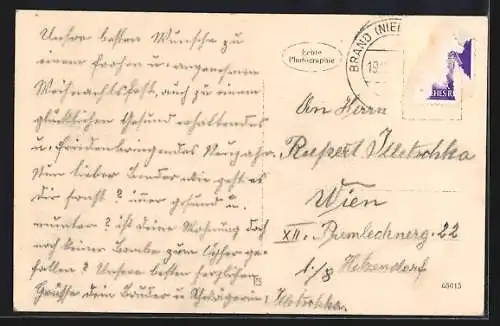 Unsere besten Wünsche zu
einem frohen u. angenehmen
Weihnachtsfest, auch zu einem
glücklichen Gesund erhaltendes
u. Friedenbringendes Neujahr.
Nun lieber Bruder wie geht es
dir ? immer gesund u.
munter? ist deine Wohnung doch
noch keiner Bombe zum Opfer ge-
fallen? Unsere besten herzlichen
Grüsse dein Bruder u. Schwägerin, Illetschka.
Echte
Photographie
BRAND (NIE
19
HES R
An Herrn
Rupert Illetschka
Wien
XII. 22
1/8 Hetzendorf